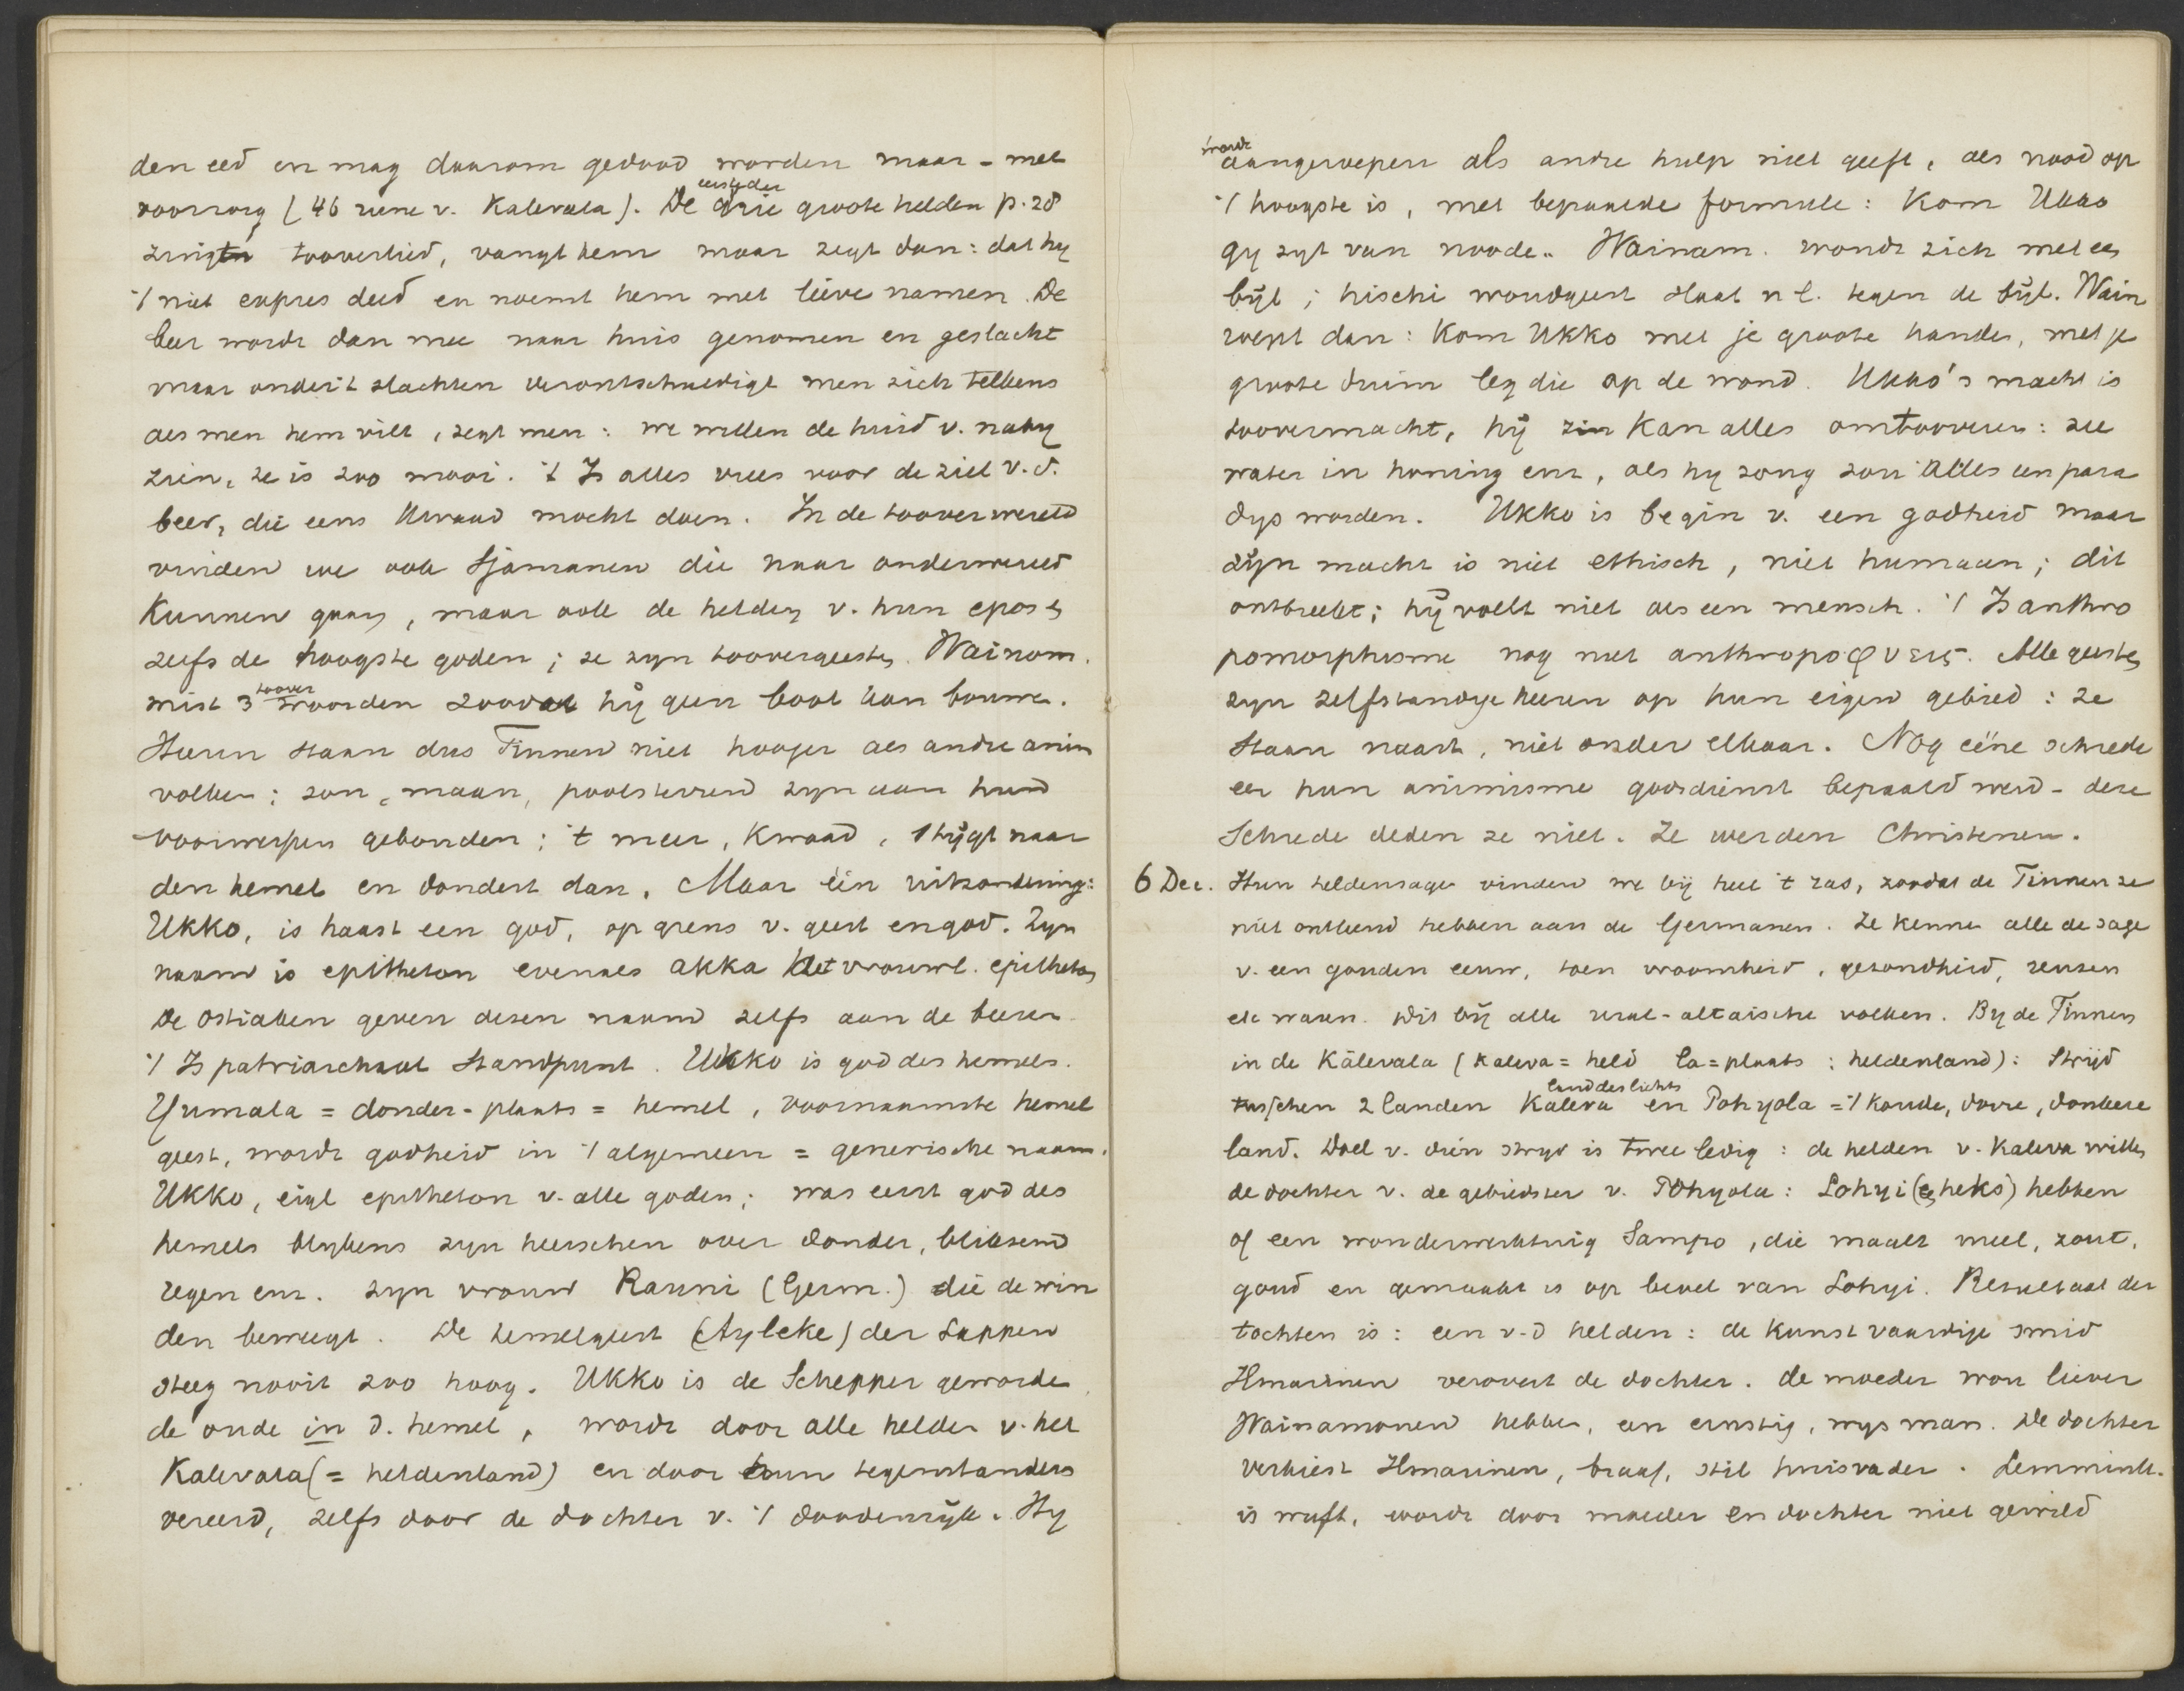 den eed en mag daarom gedood worden maar - met
voorzorg (46 rune v. Kalevala). De eerste der drie groote helden p. 28
zingt tooverlied, vangt hem maar zegt dan: dat hy
't niet expres deed en noemt hem met lieve namen. De
beer wordt dan mee naar huis genomen en geslacht
maar onder 't slachten verontschuldigt men zich telkens
als men hem vilt, zegt men: we willen de huid v. naby
zien, ze is zoo mooi. 't Is alles vrees voor de ziel v. d.
beer, die eens kwaad mocht doen. In de tooverwereld
vinden we ook Sjamanen die naar onderwereld
Kunnen gaan, maar ook de helden v. hun epos en
zelfs de hoogste goden; ze zyn toovergeesten. Wainam.
mist 3 toover woorden zoodat hij geen boot kan bouwen.
Hierin staan dus Finnen niet hooger als andre anim
volken: zon, maan, poolsterren zyn aan hun
voorwerpen gebonden; 't meer, kwaad, stijgt naar
den hemel en dondert dan. Maar één uitzondering:
Ukko, is haast een god, op grens v. geest en god. Zyn
naam is epitheton evenals akka het vrouwl. epitheton
De Ostiaken geven dezen naam zelfs aan de beeren.
't Is patriarchaal standpunt. Ukko is god des hemels.
Yumala = donder-plaats = hemel, voornaamste hemel
geest, wordt godheid in 't algemeen = generische naam.
Ukko, eigl epitheton v. alle goden; was eerst god des
hemels blykens zyn heerschen over donder, bliksem
regen enz. zyn vrouw Rauni (Germ.) die de win
den beweegt. De hemelgeest (Ayleke) der Lappen
steeg nooit zoo hoog. Ukko is de Schepper geworden
de oude in d. hemel, wordt door alle helden v. het
Kalevala (= heldenland) en door hun tegenstanders
vereerd, zelfs door de dochter v. 't doodenrijk. Hy
wordt aangeroepen als andre hulp niet geeft, als nood op
't hoogste is, met bepaalde formule: Kom Ukko
gy zyt van noode. Wainam. wondt zich met een
bijl; hischi woudgeest slaat nl. tegen de bijl. Wain
roept dan: Kom Ukko met je groote handen, met je
groote duim leg die op de wond. Ukko's macht is
toovermacht, hij kan alles omtooveren: zee
water in honing enz, als hy zong zou alles een para
dys worden. Ukko is begin v. een godheid maar
zijn macht is niet ethisch, niet humaan; dit
ontbreekt; hij voelt niet als een mensch. 't Is anthro
pomorphisme nog niet anthropoφυεις. Alle geesten
zyn zelfstandige heeren op hun eigen gebied: ze
staan naast, niet onder elkaar. Nog eéne schrede
eer hun animisme godsdienst bepaald werd - deze
Schrede deden ze niet. Ze werden Christenen.
6 Dec. Hun heldensagen vinden we bij heel 't ras, zoodat de Finnen ze
niet ontleend hebben aan de Germanen. Ze kennen alle de sage
v. een gouden eeuw, toen vroomheid, gezondheid, reuzen
etc waren. dit bij alle ural-altaische volken. By de Finnen
in de Kălevala (kaleva = held la = plaats: heldenland): Strijd
tusschen 2 landen Kaleva land des lichts en Pohyola = 't koude, dorre, donkere
land. Doel v. dien stryd is twee ledig: de helden v. Kaleva willen
de dochter v. de gebiedster v. Pohyola: Lohyi (een heks) hebben
of een wonderwerktuig Sampo, die maalt meel, zout,
goud en gemaakt is op bevel van Lohyi. Resultaat der
tochten is: een v.d helden: de kunstvaardige smid
Ilmarinen verovert de dochter. de moeder wou liever
Wainamonen hebben, een ernstig, wys man. De dochter
verkiest Ilmarinen, braaf, stil huisvader. Lemmink.
is wuft, wordt door moeder en dochter niet gewild